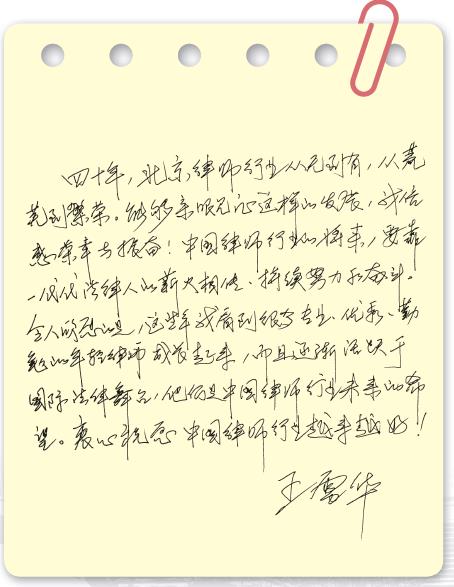 四十年，北京律师行业从无到有，从荒
芜到繁荣。能够亲眼见证这样的发展，我倍
感荣幸与振奋！中国律师行业的将来，要靠
一代代法律人的薪火相传、持续努力和奋斗。
令人欣慰的是，这些年我看到很多专业、优秀、勤
勉的年轻律师成长起来，而且还活跃于
国际法律舞台，他们是中国律师行业未来的希
望。衷心祝愿中国律师行业越来越好！
王雪华